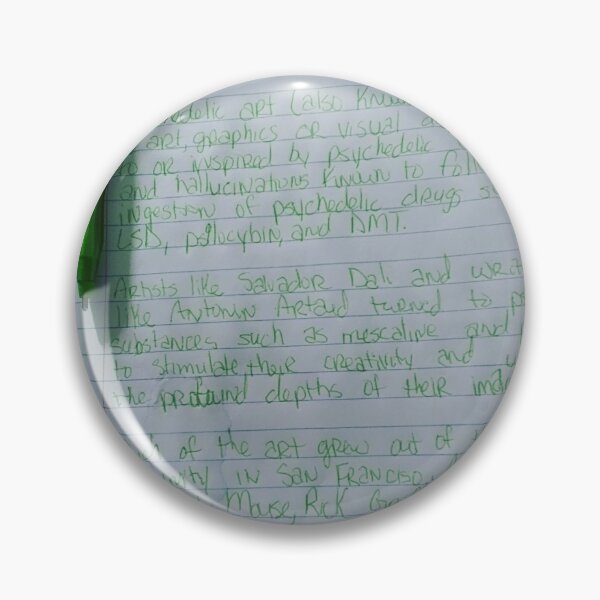 delic art (also Know
art, graphics or visual
to or inspired by psychedelic
and hallucinations known to foll
ingestion of psychedelic drugs s
LSD, psilocybin, and DMT.
Artists like Salvador Dali and writ
like Antonin Artaud turned to p
substances such as mescaline and
to stimulate their creativity and u
the profound depths of their ima
of the art grew out of
IN SAN FRANCISCO
Mouse, Rick